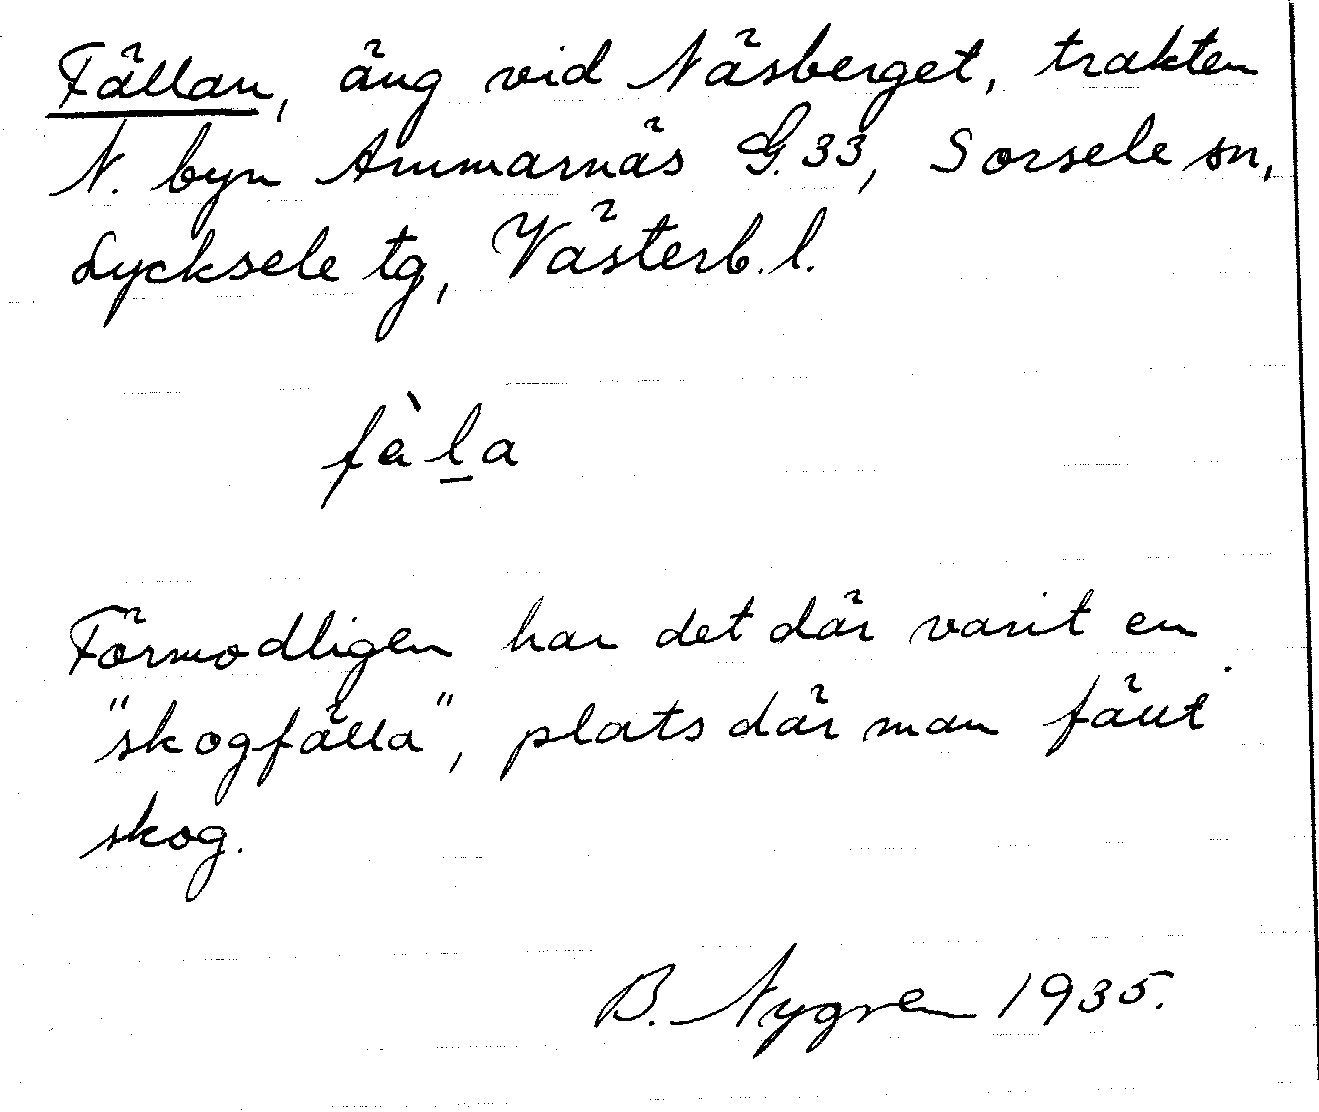 Fällan, äng vid Näsberget, trakten
N. byn Ammarnäs G.33, Sorsele sn,
Lycksele tg, Västerb.l.
fàl̲a
Förmodligen har det där varit en
"skogfälla", plats där man fällt
skog.
B. Nygren 1935.